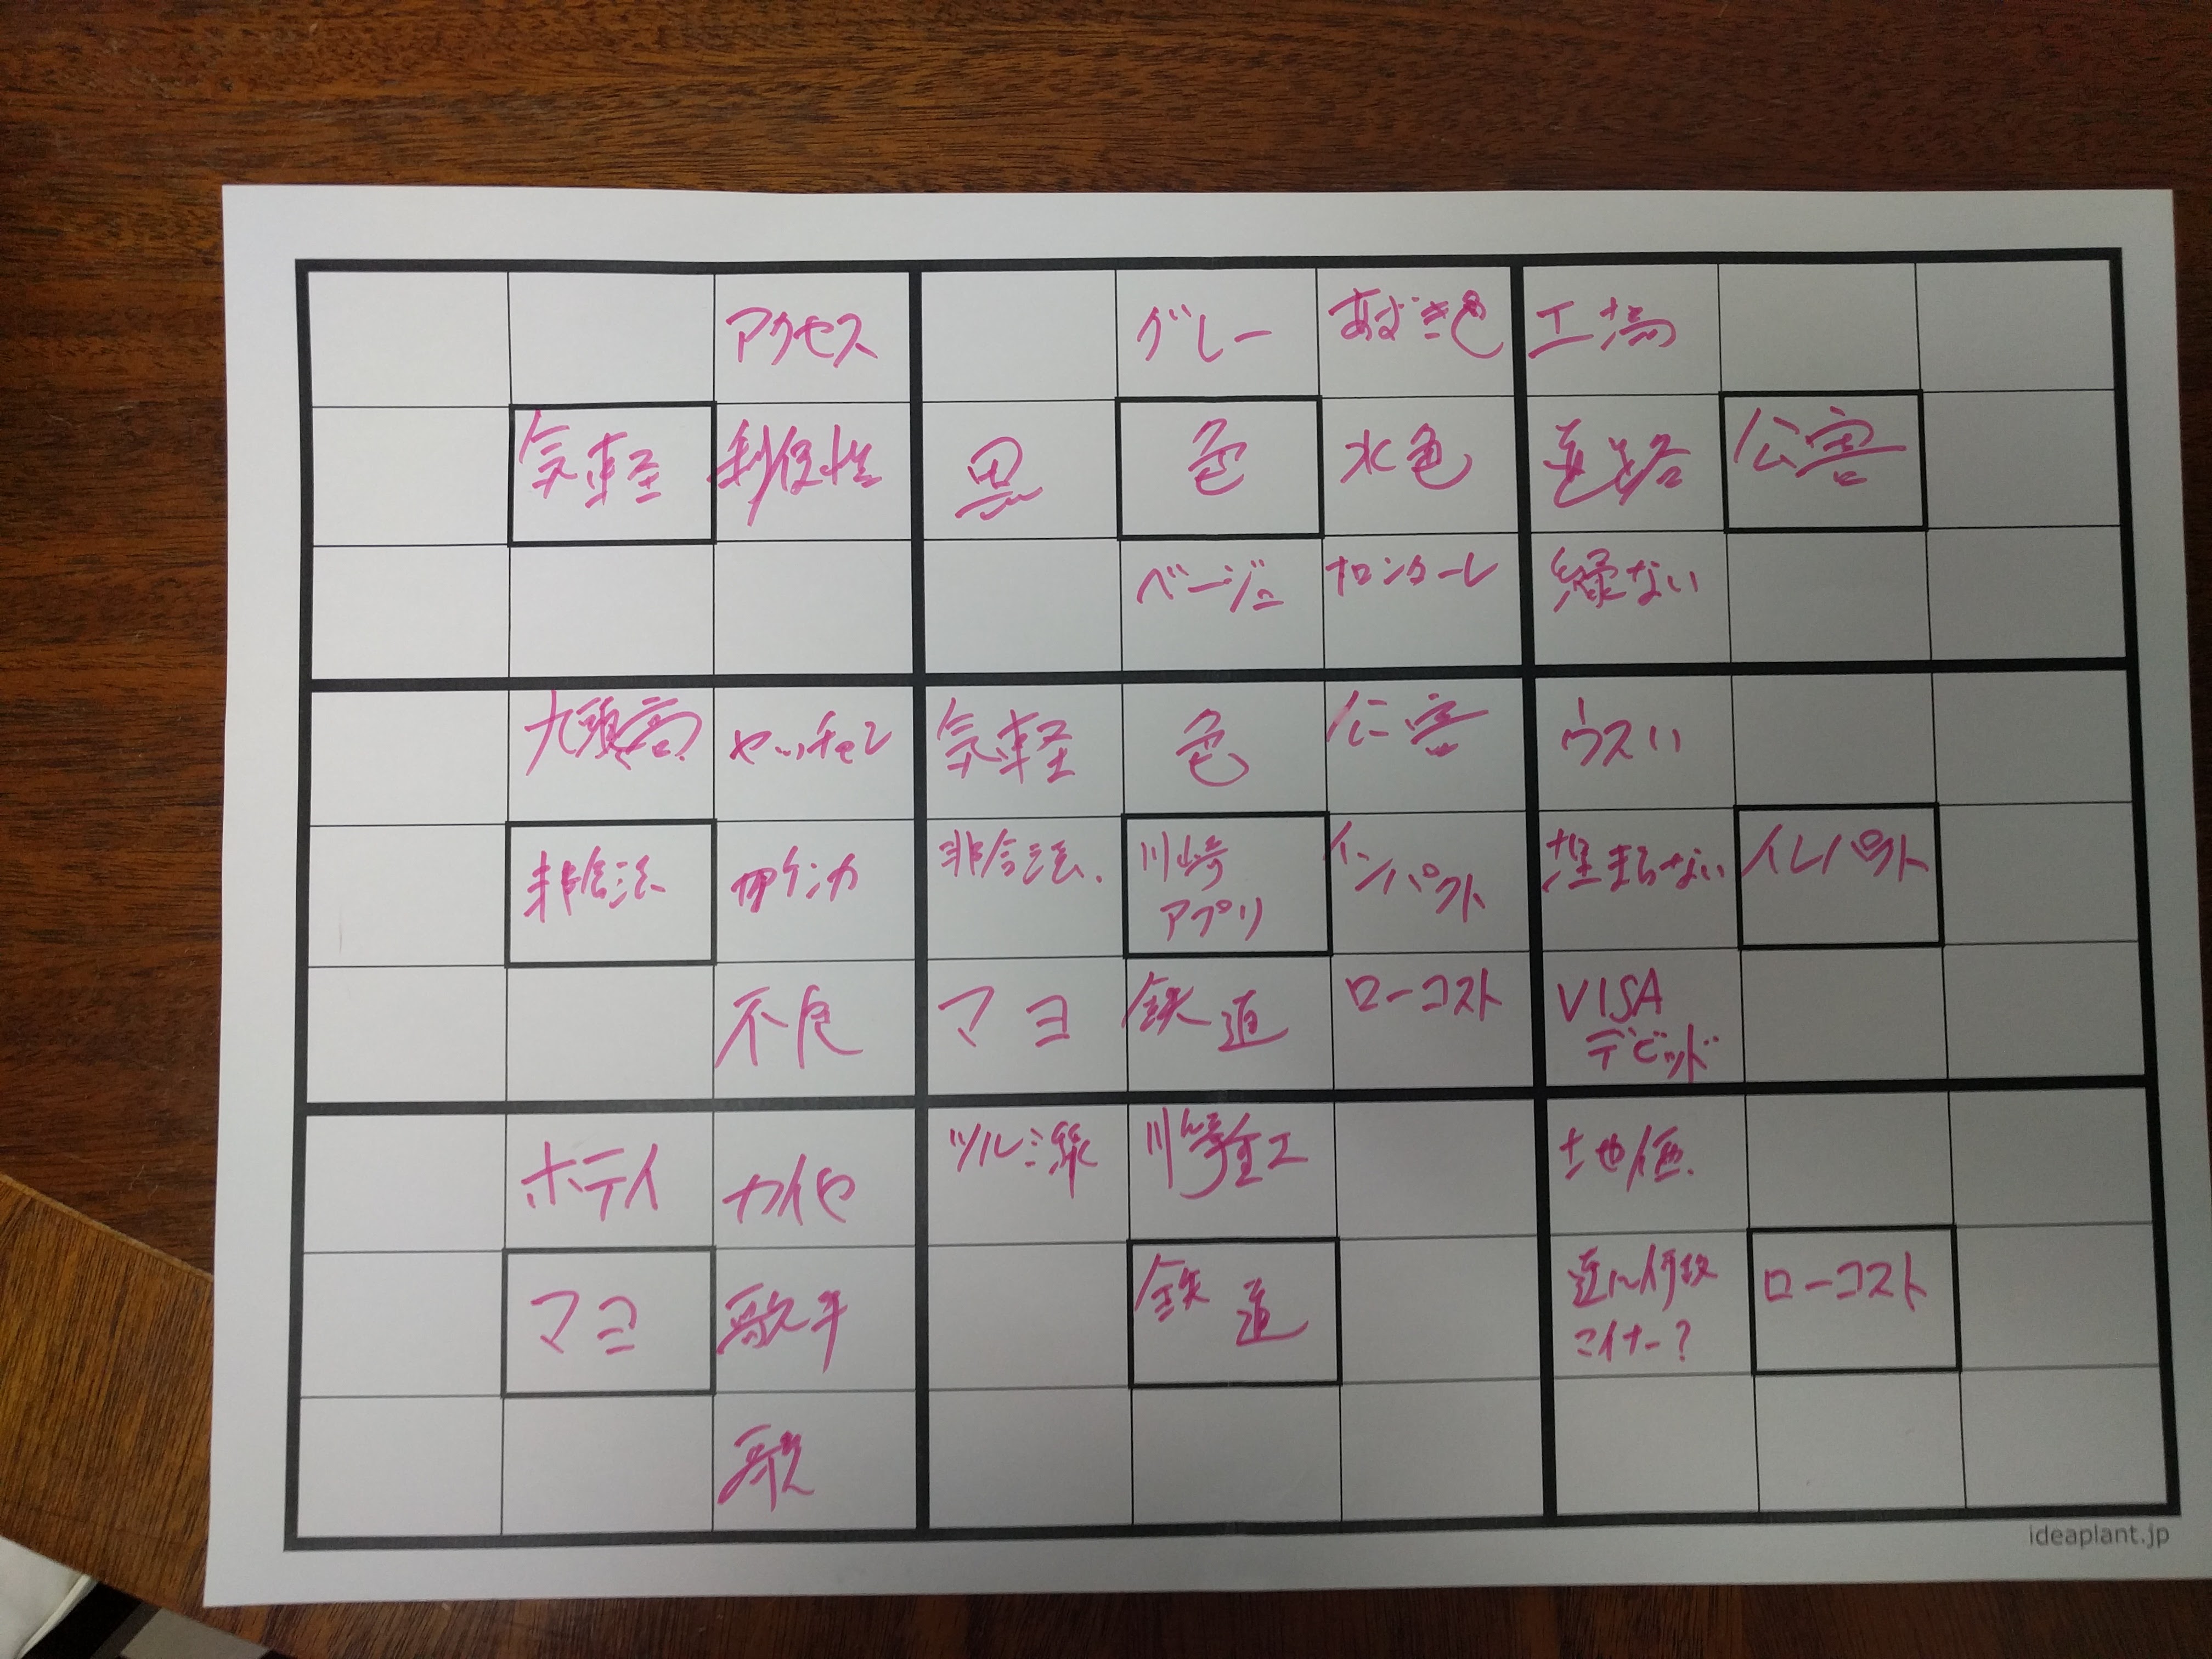 アクセス
グレー
あずき色
工場
気軽
利便性
黒
色
水色
道路
公害
ベージュ
緑ない
九頭
ヤッチャン
気軽
色
公害
ウスい
非合法
ケンカ
非合法.
川崎
アプリ
インパクト
埋まらない
インパクト
不良
マヨ
鉄道
ローコスト
VISA
デビッド
ホテイ
カイヤ
ツルミ線
川崎重工
土地価
マヨ
歌手
鉄道
マイナー?
ローコスト
歌
ideaplant.jp